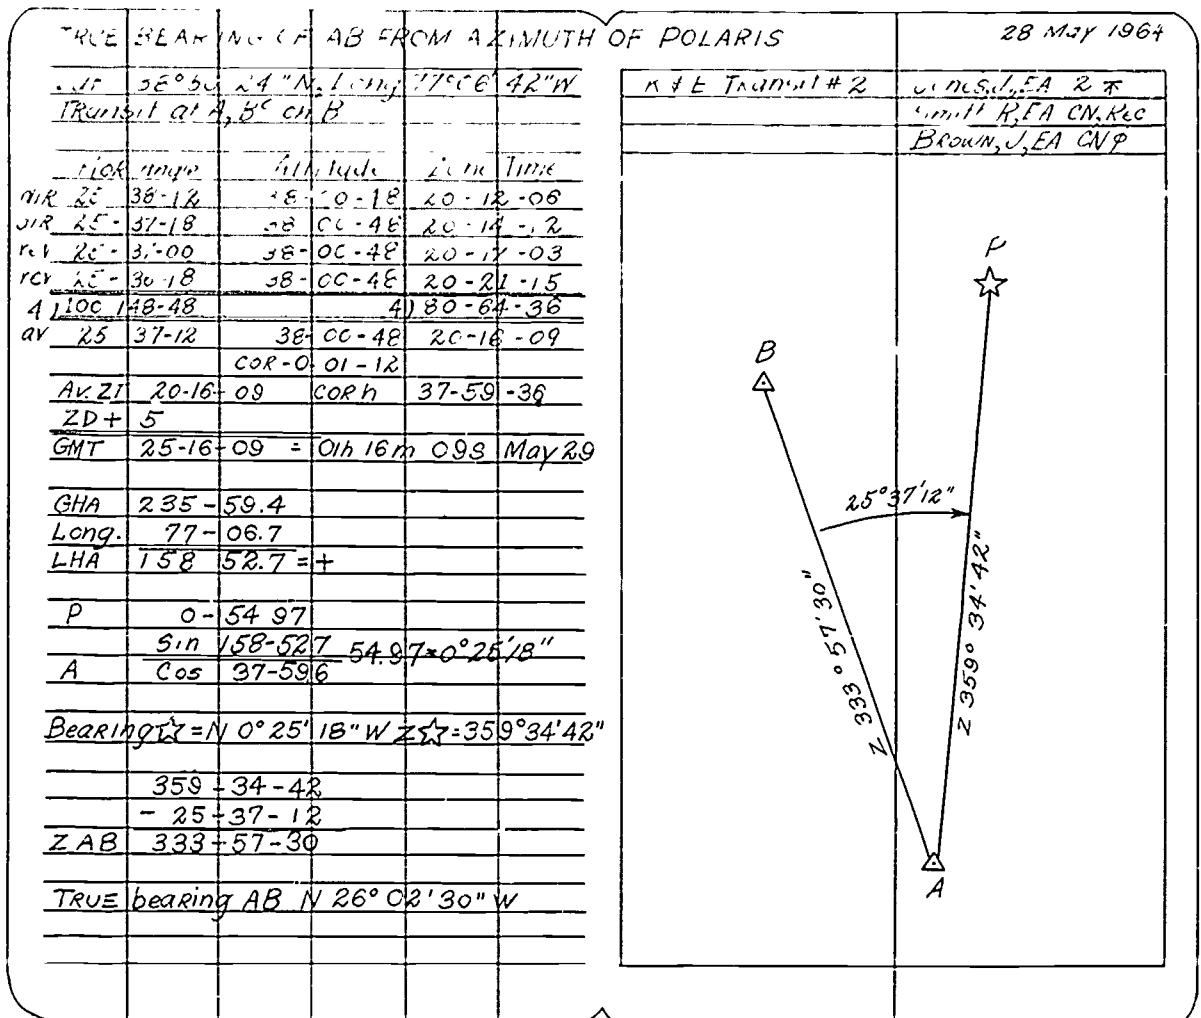 TRUE BEARING OF AB FROM AZIMUTH OF POLARIS
28 May 1964
24" N. Long 77°06' 42" W
Transit at A, BS on B
Angle Altitude Zone Time
DIR 25 38-12 38-00-18 20-12-06
DIR 25-37-18 38 00-48 20-14-12
rev 25- -00 38-00-48 20-17-03
rev 25-36-18 38-00-48 20-21-15
4) 100 148-48 4) 80-64-36
av 25 37-12 38-00-48 20-16-09
COR-0 01-12
Av. ZT 20-16-09 COR h 37-59-36
ZD+ 5
GMT 25-16-09 = 01h 16m 09s May 29
GHA 235-59.4
Long. 77-06.7
LHA 158 52.7 = +
P 0-54 97
Sin 158-527 54.97=0°25'18"
A Cos 37-596
Bearing ☆ = N 0° 25' 18" W Z☆=359°34'42"
359-34-42
- 25-37-12
Z AB 333-57-30
TRUE bearing AB N 26° 02' 30" W
K & E Transit # 2
J., EA 2 ⊼
R, EA CN, Rec
BROWN, J, EA CN φ
P
B
25°37'12"
Z 333° 57' 30"
Z 359° 34' 42"
A